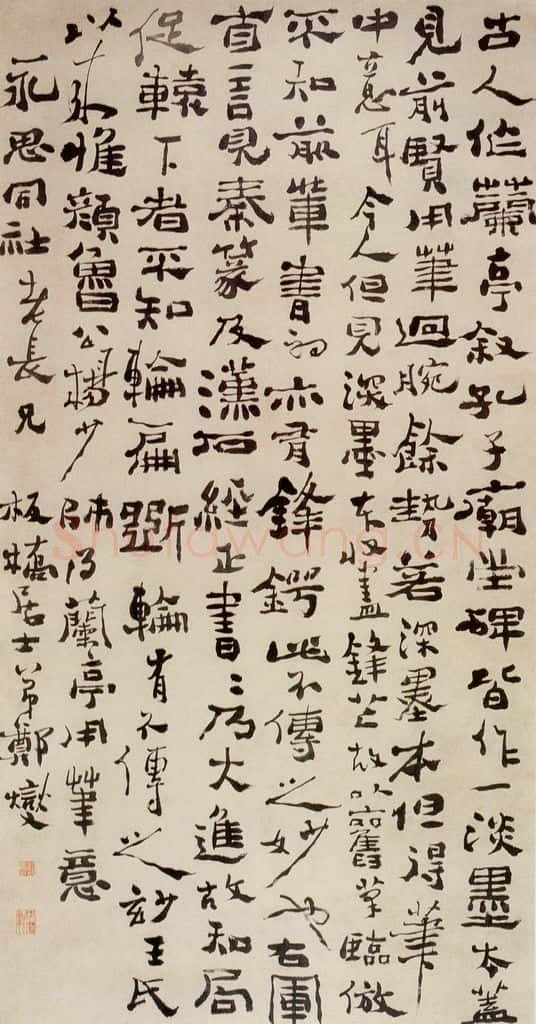 古人作蘭亭叙孔子廟堂碑皆作一淡墨本蓋
見前賢用筆迴腕餘勢若深墨本但得筆
中意耳今人但見深墨本收盡鋒芒故以舊筆臨倣
不知前輩書初亦有鋒鍔此不傳之妙也右軍
自言見秦篆及漢石經正書〻乃大進故知局
促轅下者不知輪扁斲輪有不傳之妙王氏
以來惟顏魯公楊少師得蘭亭用筆意
永思同社老長兄 板橋居士弟鄭燮
Shufawang.CN